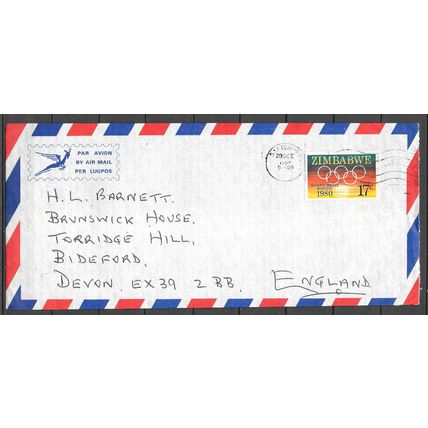 PAR AVION
BY AIR MAIL
PER LUGPOS
ZIMBABWE
1980
17c
H.L. BARNETT.
BRUNSWICK HOUSE,
TORRIDGE HILL,
BIDEFORD,
DEVON. EX39 2BB.
ENGLAND